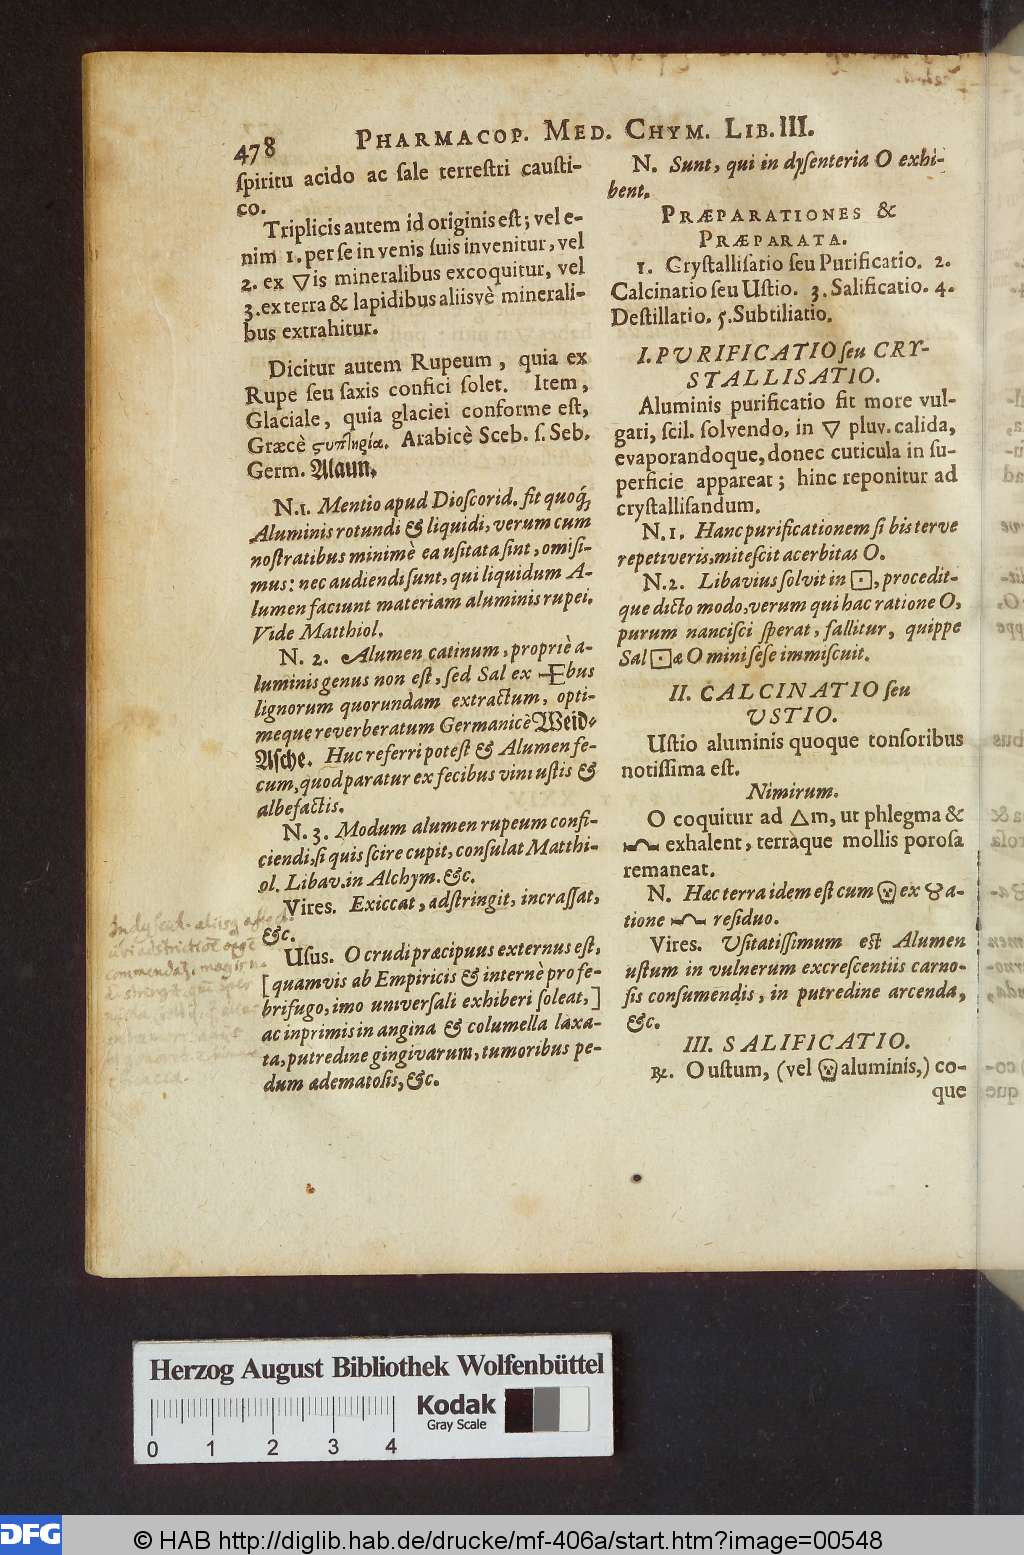 478 PHARMACOP. MED. CHYM. LIB. III.
ſpiritu acido ac ſale terreſtri cauſti-
co.
Triplicis autem id originis eſt; vel e-
nim 1. per ſe in venis ſuis invenitur, vel
2. ex ▽is mineralibus excoquitur, vel
3. ex terra & lapidibus aliisvè minerali-
bus extrahitur.
Dicitur autem Rupeum, quia ex
Rupe ſeu ſaxis confici ſolet. Item,
Glaciale, quia glaciei conforme eſt,
Græcè ϛυπηρία. Arabicè Sceb. ſ. Seb.
Germ. Alaun.
N. 1. Mentio apud Dioſcorid. fit quoq;
Aluminis rotundi & liquidi, verum cum
noſtratibus minimè ea uſitata ſint, omiſi-
mus: nec audiendi ſunt, qui liquidum A-
lumen faciunt materiam aluminis rupei.
Vide Matthiol.
N. 2. Alumen catinum, propriè a-
luminis genus non eſt, ſed Sal ex bus
lignorum quorundam extractum, opti-
meque reverberatum Germanicè Weid-
Aſche. Huc referri poteſt & Alumen fe-
cum, quod paratur ex fecibus vini uſtis &
albefactis.
N. 3. Modum alumen rupeum confi-
ciendi, ſi quis ſcire cupit, conſulat Matthi-
ol. Libav. in Alchym. &c.
Vires. Exiccat, adſtringit, incraſſat,
&c.
Uſus. O crudi præcipuus externus eſt,
[quamvis ab Empiricis & internè pro fe-
brifugo, imo univerſali exhiberi ſoleat,]
ac inprimis in angina & columella laxa-
ta, putredine gingivarum, tumoribus pe-
dum ædematoſis, &c.
N. Sunt, qui in dyſenteria O exhi-
bent.
PRÆPARATIONES &
PRÆPARATA.
1. Cryſtalliſatio ſeu Purificatio. 2.
Calcinatio ſeu Uſtio. 3. Salificatio. 4.
Deſtillatio. 5. Subtiliatio.
I. PURIFICATIO ſeu CRY-
STALLISATIO.
Aluminis purificatio fit more vul-
gari, ſcil. ſolvendo, in ▽ pluv. calida,
evaporandoque, donec cuticula in ſu-
perficie appareat; hinc reponitur ad
cryſtalliſandum.
N. 1. Hanc purificationem ſi bis terve
repetiveris, miteſcit acerbitas O.
N. 2. Libavius ſolvit in ⊡, procedit-
que dicto modo, verum qui hac ratione O,
purum nanciſci ſperat, fallitur, quippe
Sal ⊡æ O mini ſeſe immiſcuit.
II. CALCINATIO ſeu
USTIO.
Uſtio aluminis quoque tonſoribus
notiſſima eſt.
Nimirum.
O coquitur ad △m, ut phlegma &
exhalent, terraque mollis poroſa
remaneat.
N. Hæc terra idem eſt cum ex a-
tione reſiduo.
Vires. Uſitatiſſimum eſt Alumen
uſtum in vulnerum excreſcentiis carno-
ſis conſumendis, in putredine arcenda,
&c.
III. SALIFICATIO.
℞. O uſtum, (vel aluminis,) co-
que
Herzog August Bibliothek Wolfenbüttel
Kodak
Gray Scale
0 1 2 3 4
DFG
© HAB http://diglib.hab.de/drucke/mf-406a/start.htm?image=00548